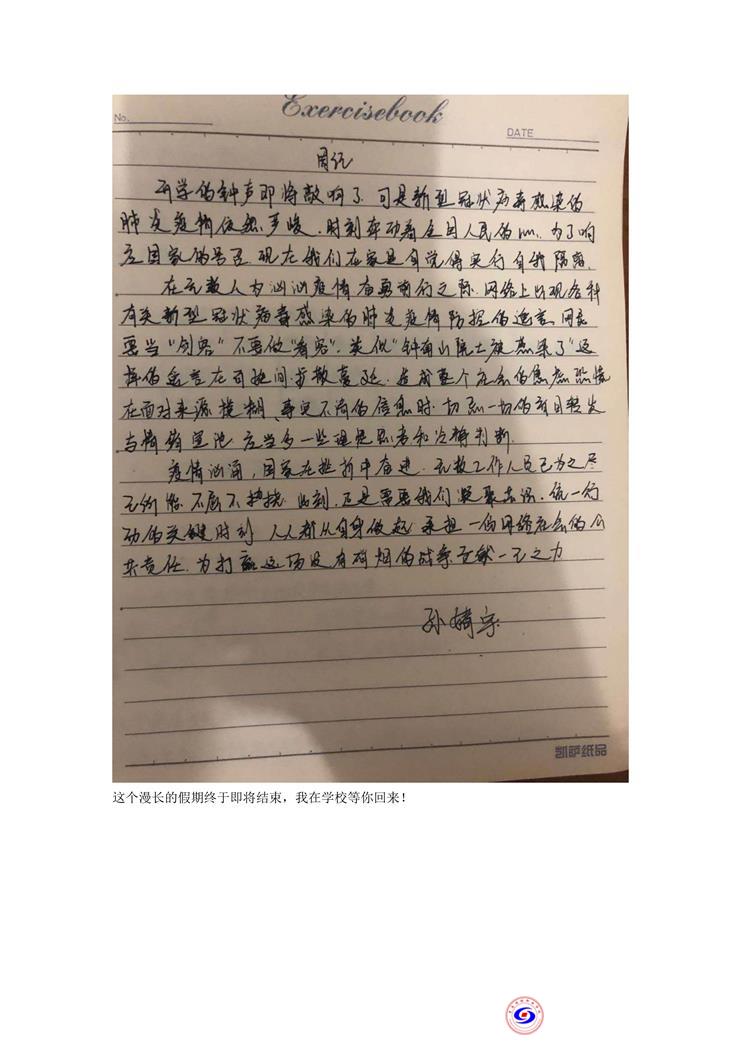 Exercisebook
No.
DATE
周记
开学的钟声即将敲响了,可是新型冠状病毒感染的
肺炎疫情依然严峻,时刻牵动着全国人民的心。为了响
应国家的号召,现在我们在家里自觉得实行自我隔离。
在无数人为汹汹疫情奋勇前行之际,网络上出现各种
有关新型冠状病毒感染的肺炎疫情防控的谣言,网民
要当“剑客”不要做“看客”。类似“钟南山院士被感染了”这
样的谣言在司空间扩散蔓延,造成整个社会的焦虑恐慌
在面对来源模糊、事实不清的信息时,切忌一切的盲目转发
与情绪宣泄,应当多一些理性思考和冷静判断。
疫情汹涌,国家在挫折中奋进,无数工作人员已为之尽
不屈不挠,此刻,正是需要我们凝聚共识、统一行
动的关键时刻,人人都从自身做起,承担一份网络社会的公
共责任,为打赢这场没有硝烟的战争贡献一己之力
孙婧宇
凯萨纸品
这个漫长的假期终于即将结束,我在学校等你回来!